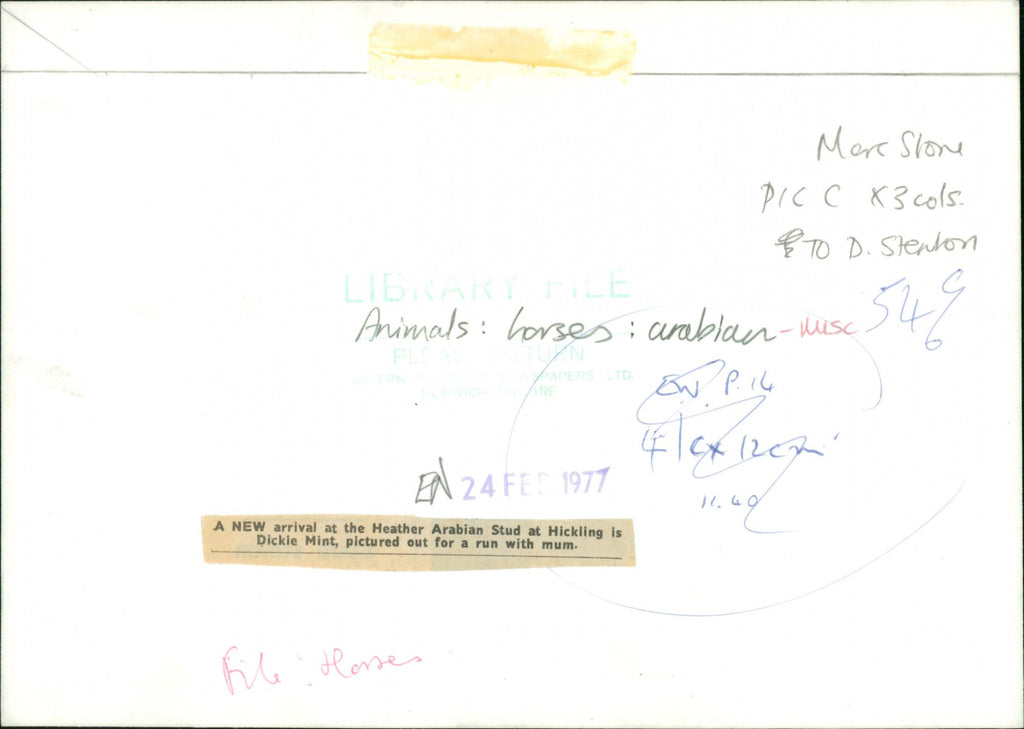 Marc Stone
PIC C X3cols.
TO D. Stenton
LIBRARY FILE
Animals: horses: arabian - misc
PLEASE RETURN
NEWSPAPERS LTD.
E.W. P.14
11.40
EN 24 FEB 1977
A NEW arrival at the Heather Arabian Stud at Hickling is
Dickie Mint, pictured out for a run with mum.
File: Horses